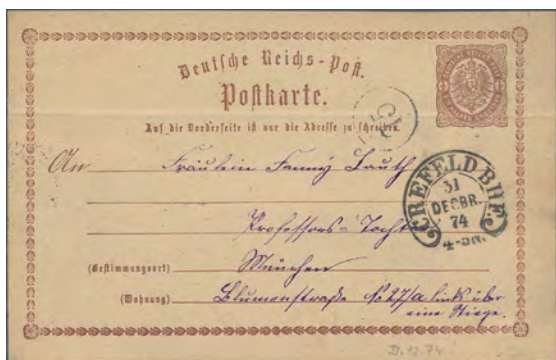 Deutsche Reichs-Post.
Postkarte.
Auf die Vorderseite ist nur die Adresse zu schreiben.
An Fräulein Fanny Lauth
Professors-Tochter
(Bestimmungsort) München
(Wohnung) Blumenstraße No 27/a links über
eine Stiege.
CREFELD BHF.
31
DECBR.
74
4-5N.
31.12.74